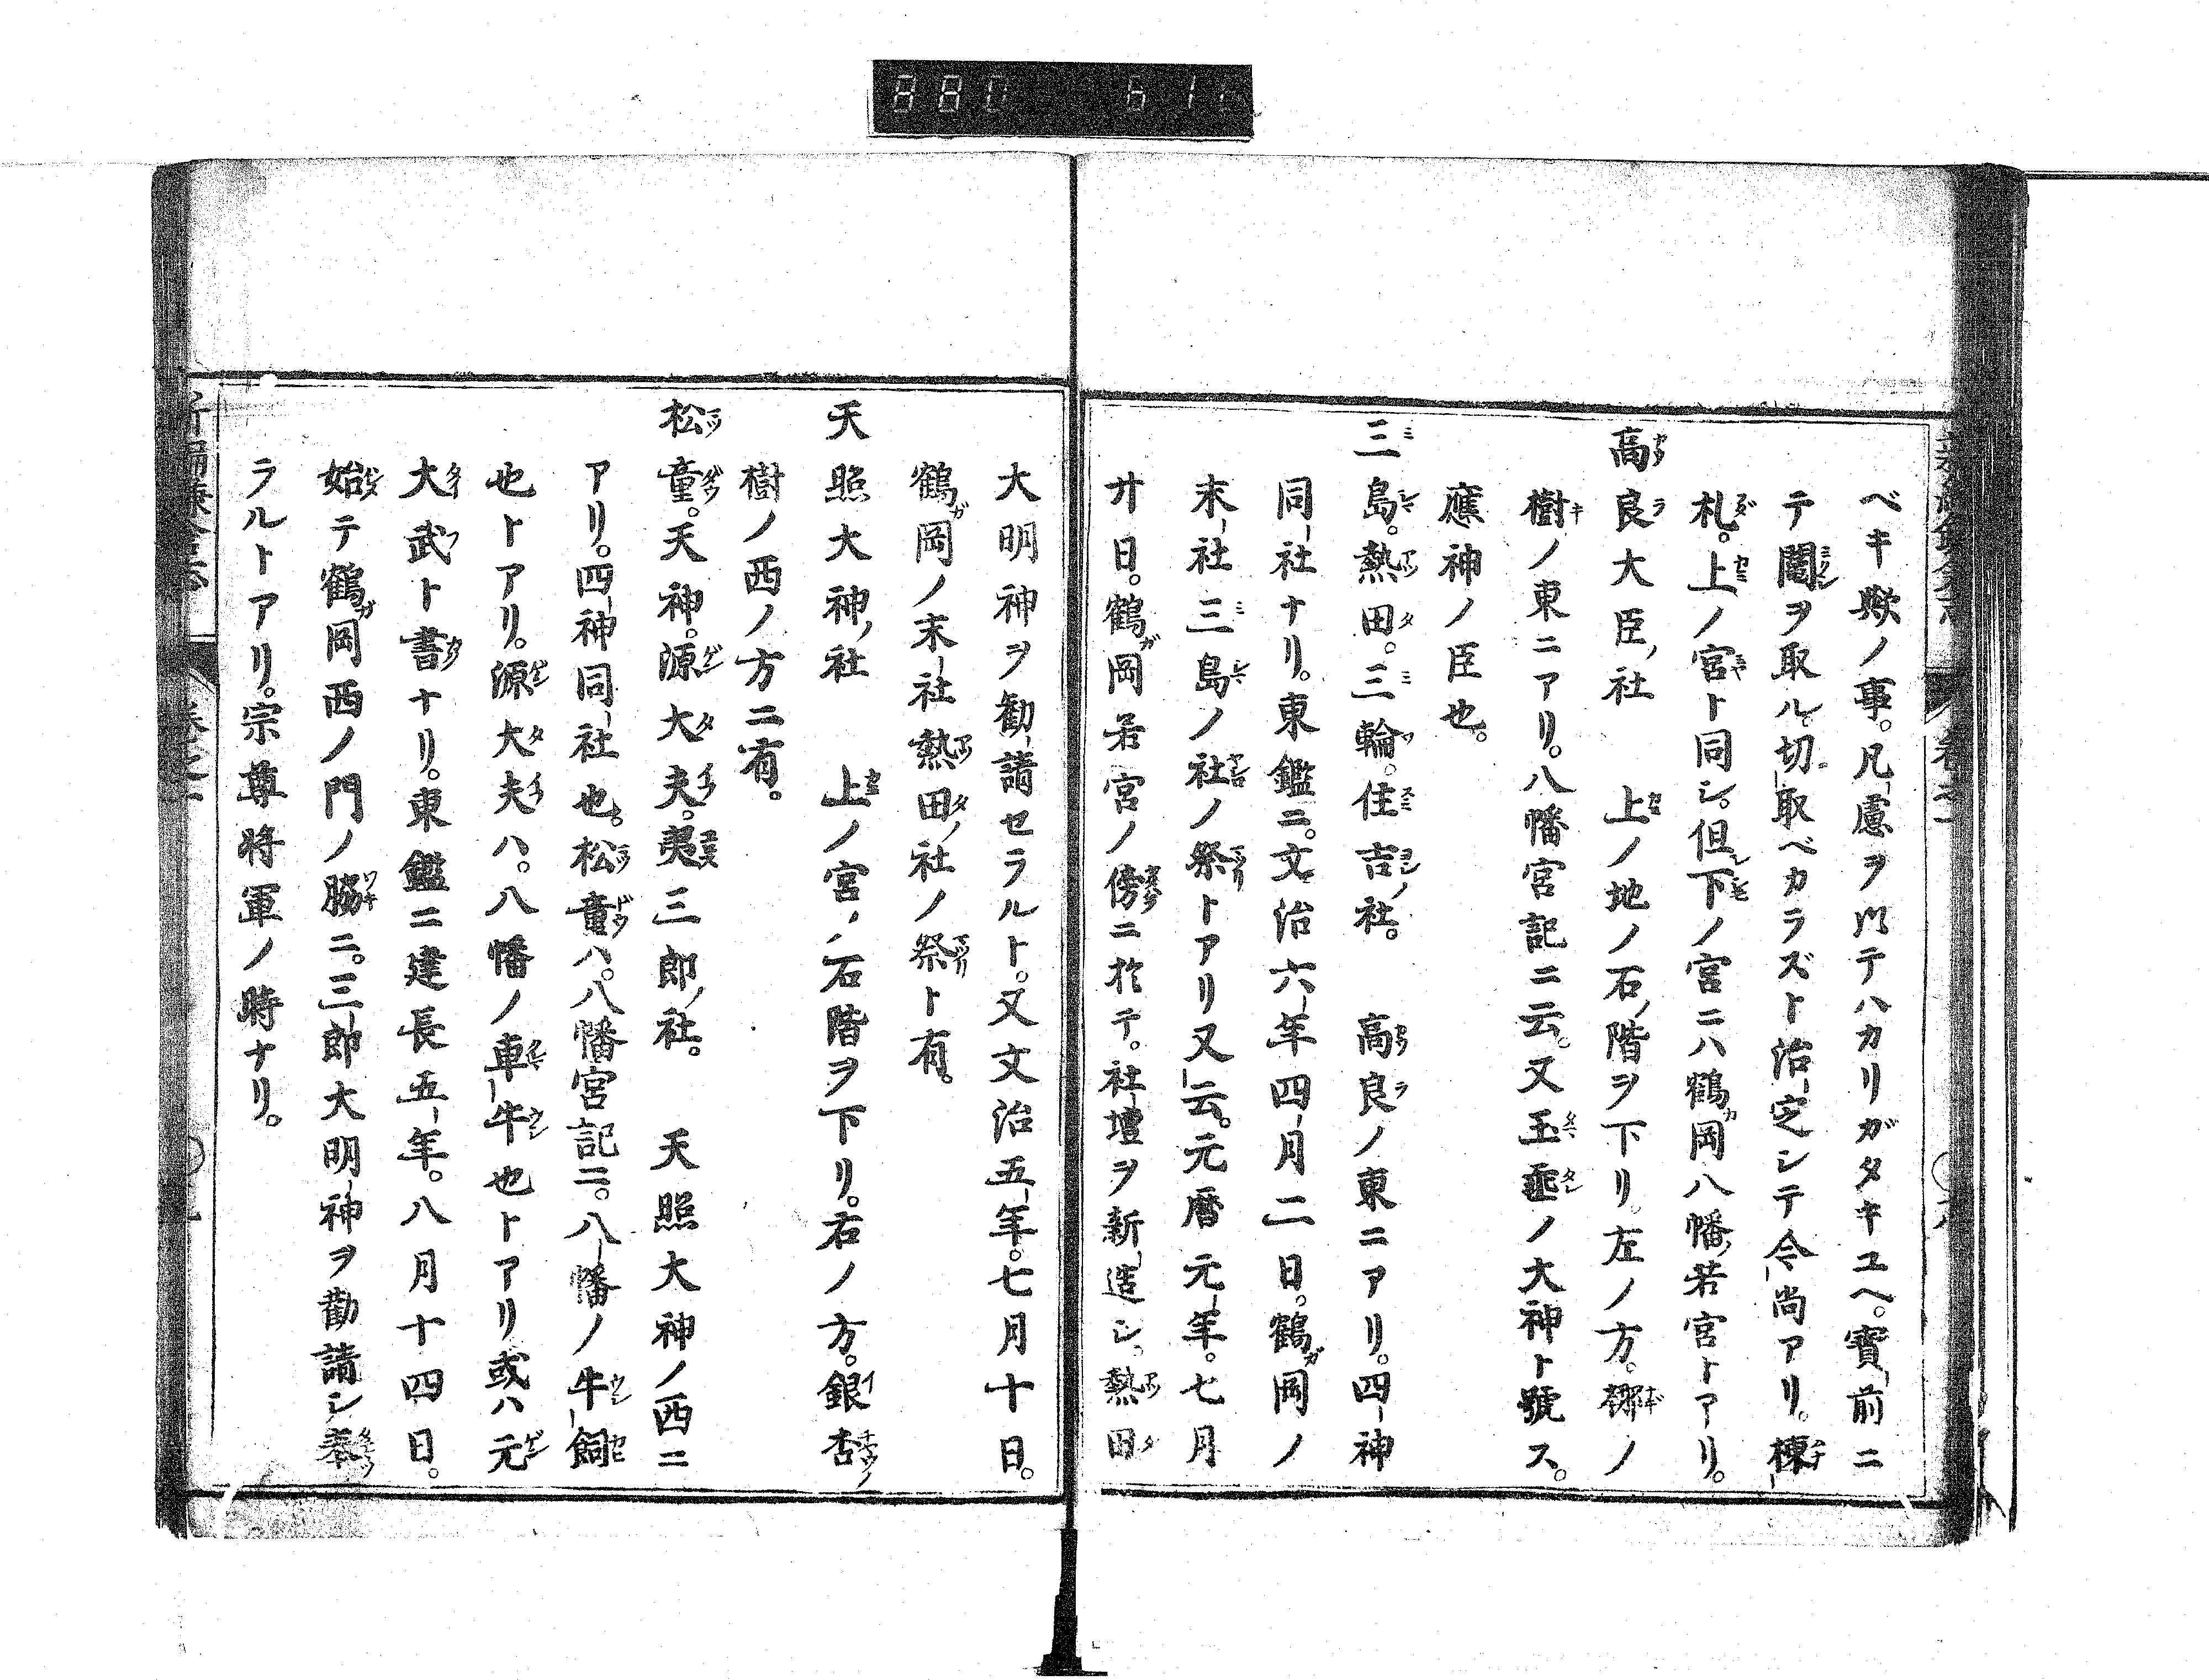 ベキ歟ノ事。凡慮ヲ以テハカリガタキユヘ。寳前ニ
テ鬮ヲ取ル。切取ベカラズト治定シテ今尚アリ。棟
札。上ノ宮ト同シ。但下ノ宮ニハ鶴岡八幡若宮トアリ。
高良大臣ノ社　上ノ地ノ石ノ階ヲ下リ。左ノ方。梛ノ
樹ノ東ニアリ。八幡宮記ニ云。又玉垂ノ大神ト號ス。
應神ノ臣也。
三島。熱田。三輪。住吉ノ社。　高良ノ東ニアリ。四神
同社ナリ。東鑑ニ。文治六年四月二日。鶴岡ノ
末社三島ノ社ノ祭トアリ又云。元暦元年。七月
廿日。鶴岡若宮ノ傍ニ於テ。社壇ヲ新造シ。熱田
大明神ヲ勧請セラルト。又文治五年。七月十日。
鶴岡ノ末社熱田ノ社ノ祭ト有。
天照大神ノ社　上ノ宮ノ石階ヲ下リ。右ノ方。銀杏
樹ノ西ノ方ニ有。
松童。天神。源大夫。夷三郎ノ社。　天照大神ノ西ニ
アリ。四神同社也。松童ハ。八幡宮記ニ。八幡ノ牛飼
也トアリ。源大夫ハ。八幡ノ車牛也トアリ或ハ元
大武ト書ナリ。東鑑ニ建長五年。八月十四日。
始テ鶴岡西ノ門ノ脇ニ。三郎大明神ヲ勧請シ奉
ラルトアリ。宗尊將軍ノ時ナリ。